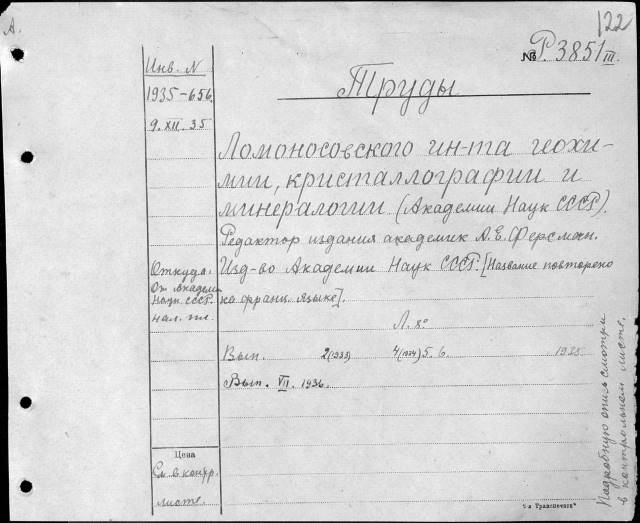 А.
122
№ Р. 3851 III.
Инв. N
1935-656.
9.XII.35
Труды
Ломоносовского ин-та геохи-
мии, кристаллографии и
минералогии (Академии Наук СССР).
Редактор издания академик А.Е. Ферсман.
Изд-во Академии Наук СССР. [Название повторено
на франц. языке].
Откуда.
От Академ.
Наук СССР.
нал. пл.
Л. 8°
Вып. 2(1933) 4(1934) 5. 6. 1935
Вып. VII. 1936.
Цена
См. в контр.
листе.
Подробную опись смотри
в контрольном листе.